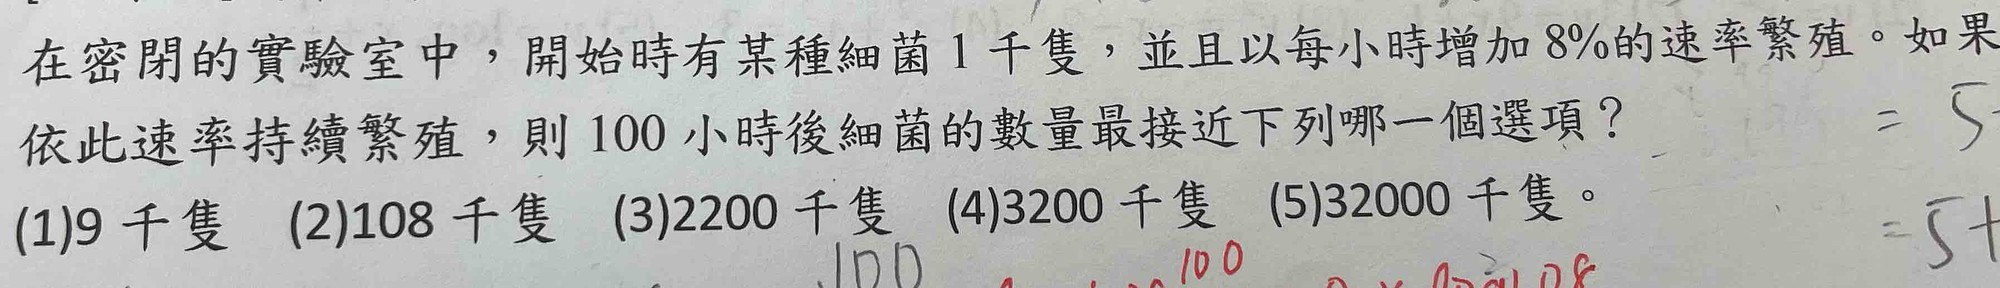 在密閉的實驗室中，開始時有某種細菌 1 千隻，並且以每小時增加 8%的速率繁殖。如果
依此速率持續繁殖，則 100 小時後細菌的數量最接近下列哪一個選項？
= 5
(1)9 千隻 (2)108 千隻 (3)2200 千隻 (4)3200 千隻 (5)32000 千隻。
= 5+
100
100